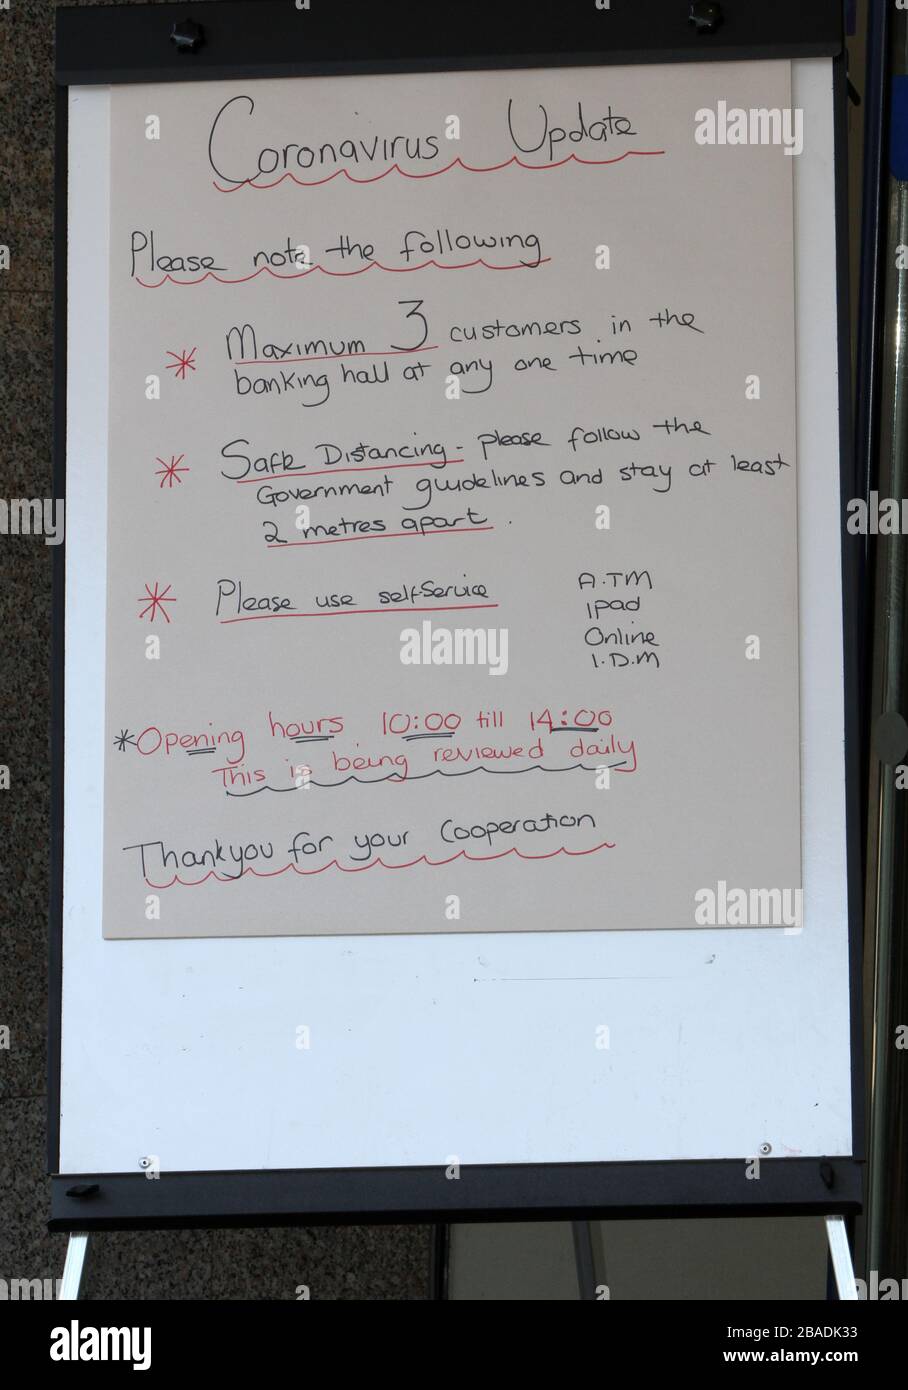 Coronavirus Update
Please note the following
* Maximum 3 customers in the
banking hall at any one time
* Safe Distancing - please follow the
Government guidelines and stay at least
2 metres apart.
* Please use self-service
A.TM
Ipad
Online
I.D.M
*Opening hours 10:00 till 14:00
This is being reviewed daily
Thankyou for your Cooperation
alamy
alamy
alamy
alamy
Image ID: 2BADK33
www.alamy.com